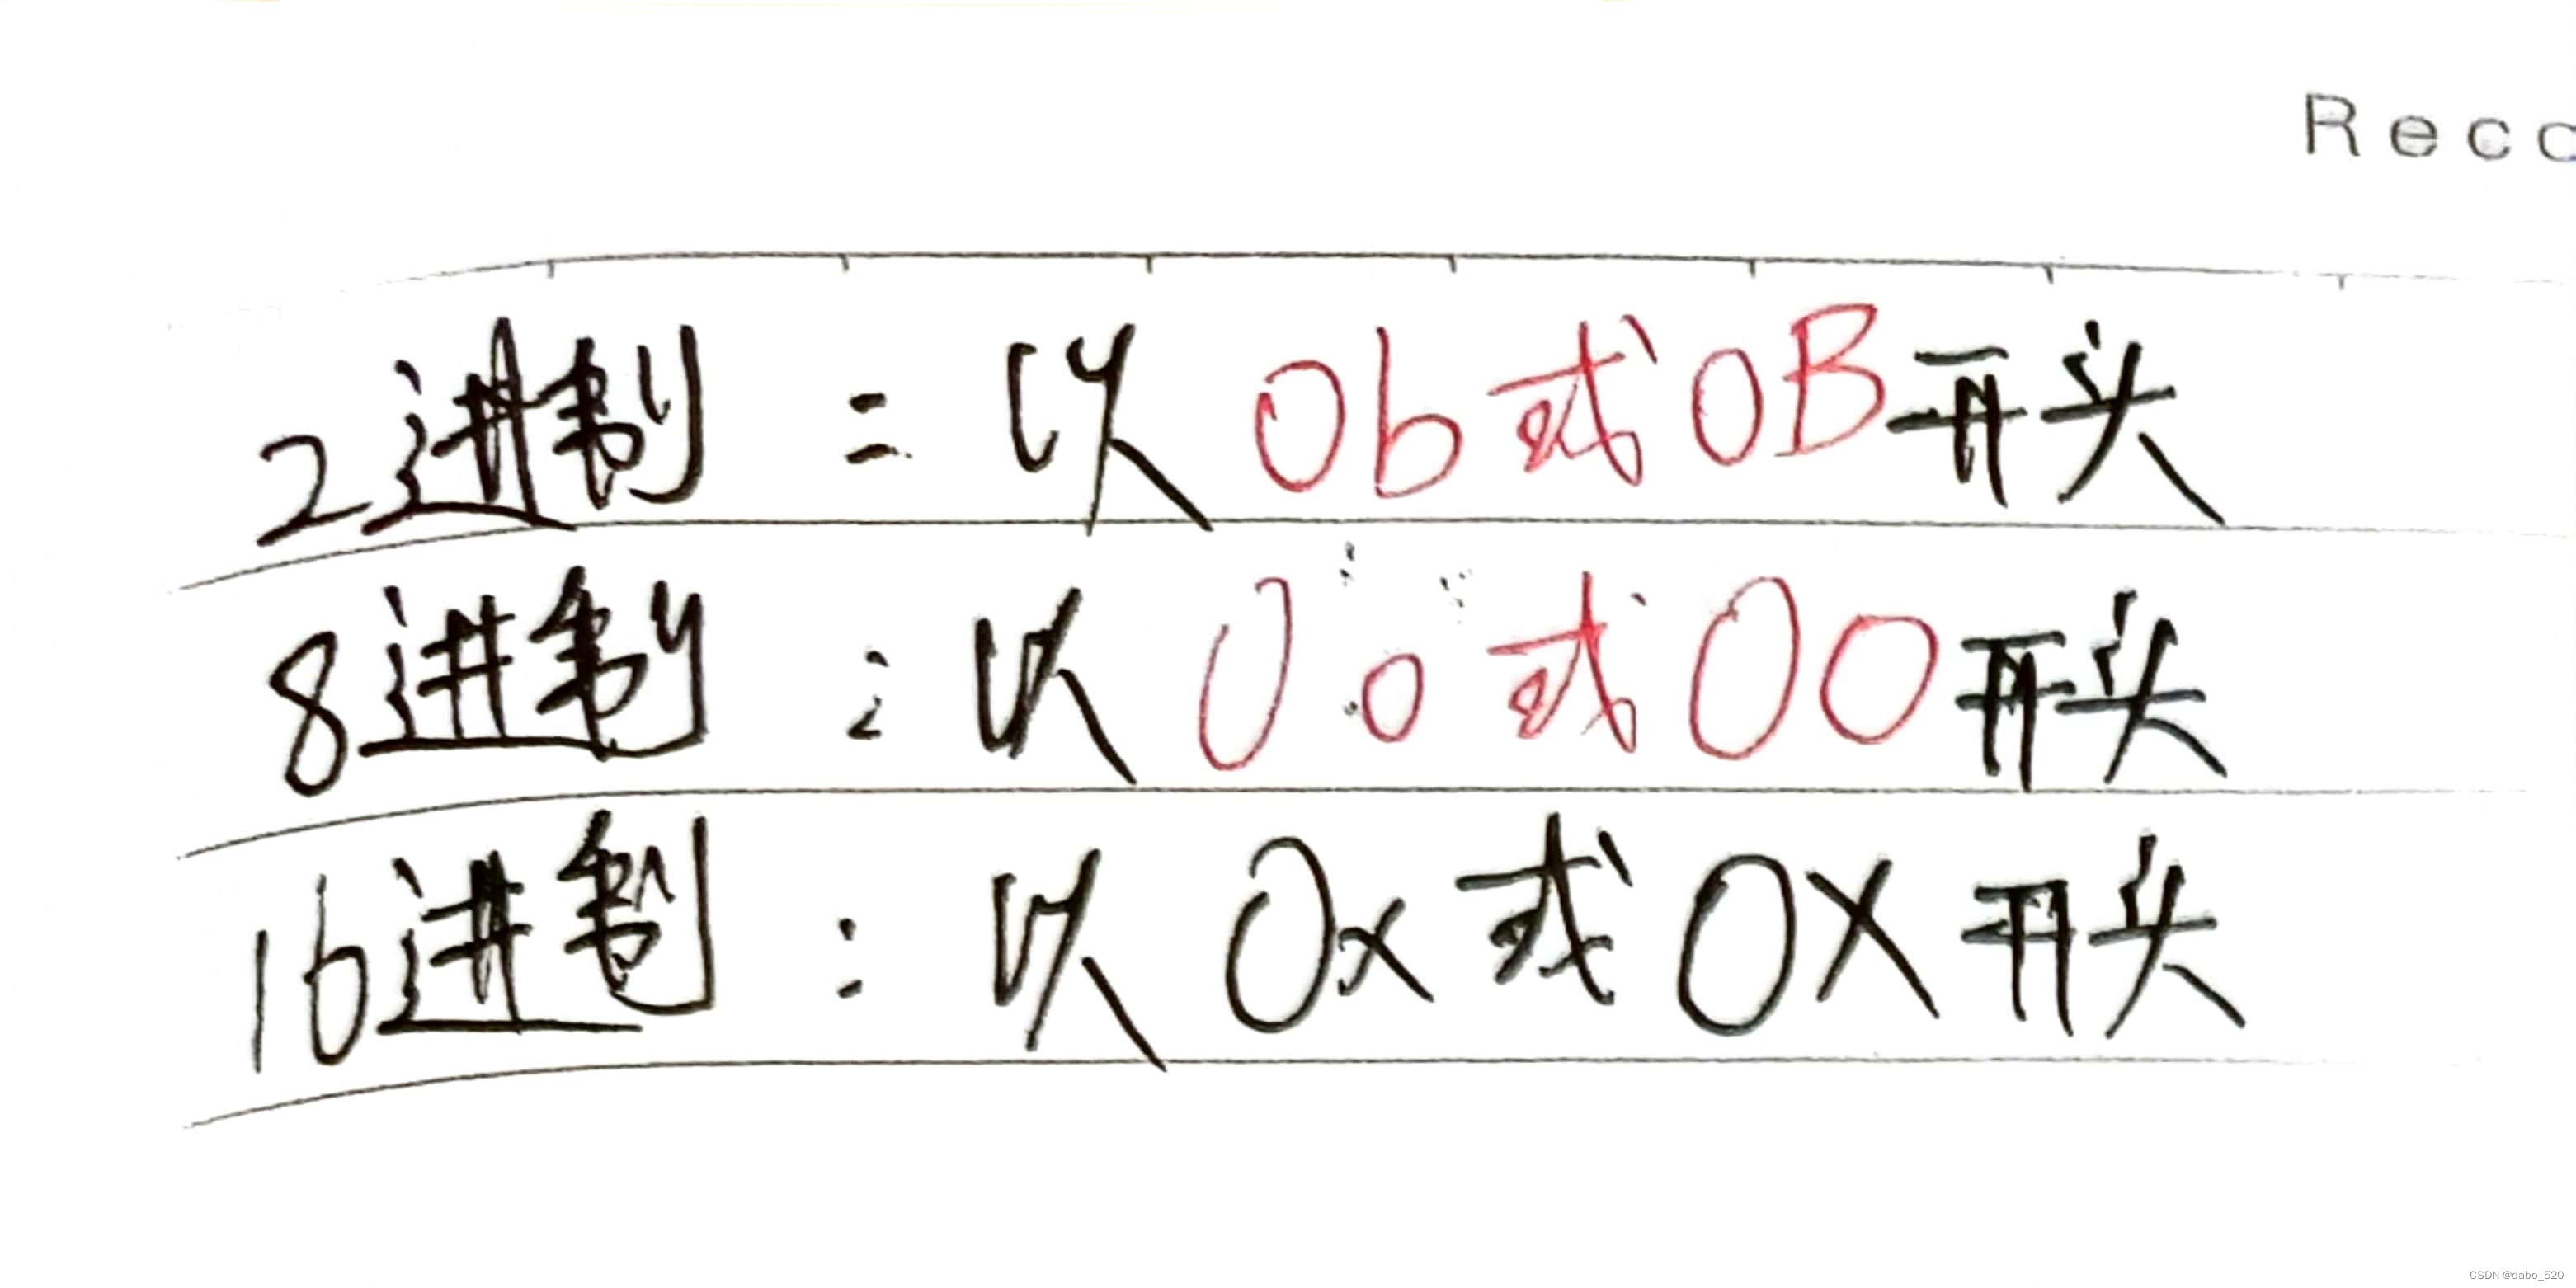 Reco
2进制：以0b或0B开头
8进制：以0o或0O开头
16进制：以0x或0X开头
CSDN @dabo_520